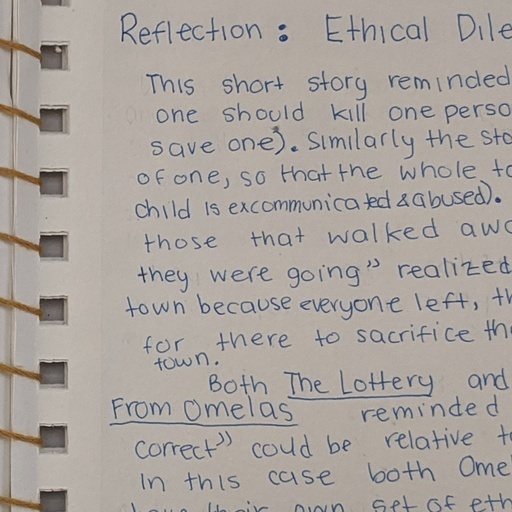 Reflection: Ethical Dile
This short story reminded
one should kill one perso
save one). Similarly the sto
of one, so that the whole to
child is excommunicated & abused).
those that walked awa
they were going" realized
town because everyone left, th
for there to sacrifice the
town.
Both The Lottery and
From Omelas reminded
correct" could be relative to
In this case both Ome
own set of eth